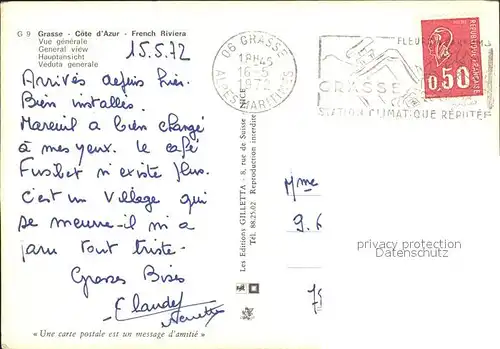 G 9 Grasse - Côte d'Azur - French Riviera
Vue générale
General view
Hauptansicht
Veduta generale
15.5.72
Arrivés depuis hier.
Bien installés.
Mareuil a bien changé
à mes yeux. le café
Fusibet n'existe plus.
C'est un village qui
se meure_il m'a
paru tout triste_
Grosses Bises
Claudet
Annette
« Une carte postale est un message d'amitié »
Les Editions GILLETTA - 8, rue de Suisse - NICE
Tél. 88.25.02 Reproduction interdite
06 GRASSE
18H45
16-5
1972
ALPES-MARITIMES
FLEURS
GRASSE
STATION CLIMATIQUE RÉPUTÉE
0,50
Mme
9.
75
privacy protection
Datenschutz